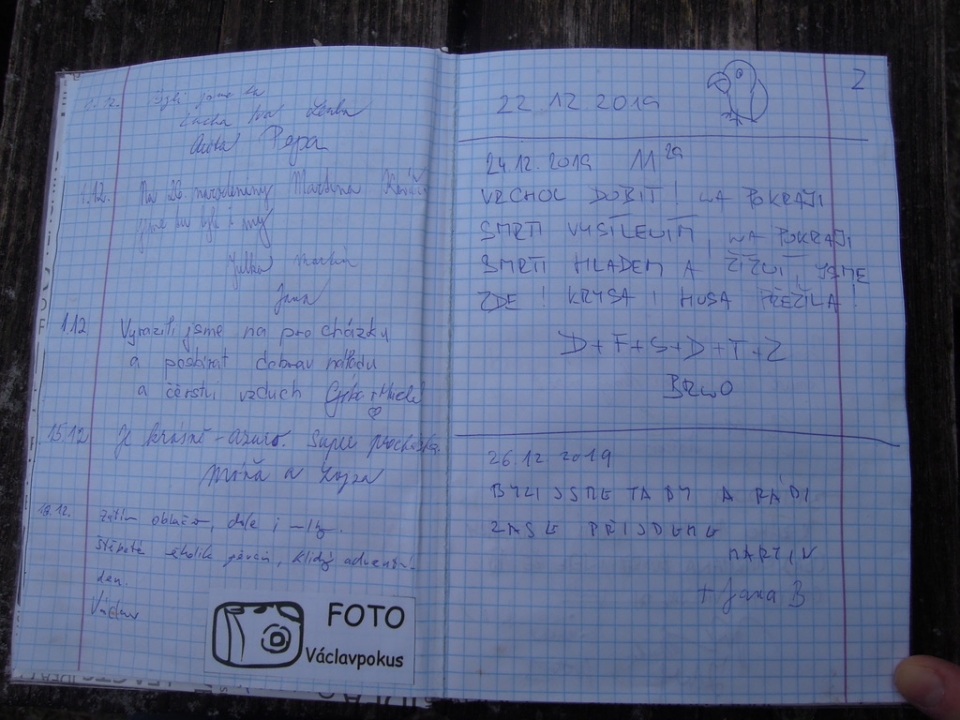 1.12.
Pepa
1.12. Na 26. narozeniny Martina
jsme tu byli i my
Julka Martin
Jana
1.12 Vyrazili jsme na procházku
a posbírat dobrou náladu
a čerstvý vzduch
15.12 Je krásně - azuro. Super procházka.
Míňa a
19.12. Zatím oblačno, dále i
klidný advent
den.
Václav
FOTO
Václavpokus
2
22.12 2019
24.12.2019 11 29
VRCHOL DOBIT! NA POKRAJI
SMRTI VYSÍLENÍM, NA POKRAJI
SMRTI HLADEM A ŽÍZNÍ, JSME
ZDE! KRYSA I HUSA PŘEŽILA!
D+F+S+D+T+Z
BRNO
26.12 2019
BYLI JSME TADY A RÁDI
ZASE PŘIJDEME
MARTIN
+ Jana B